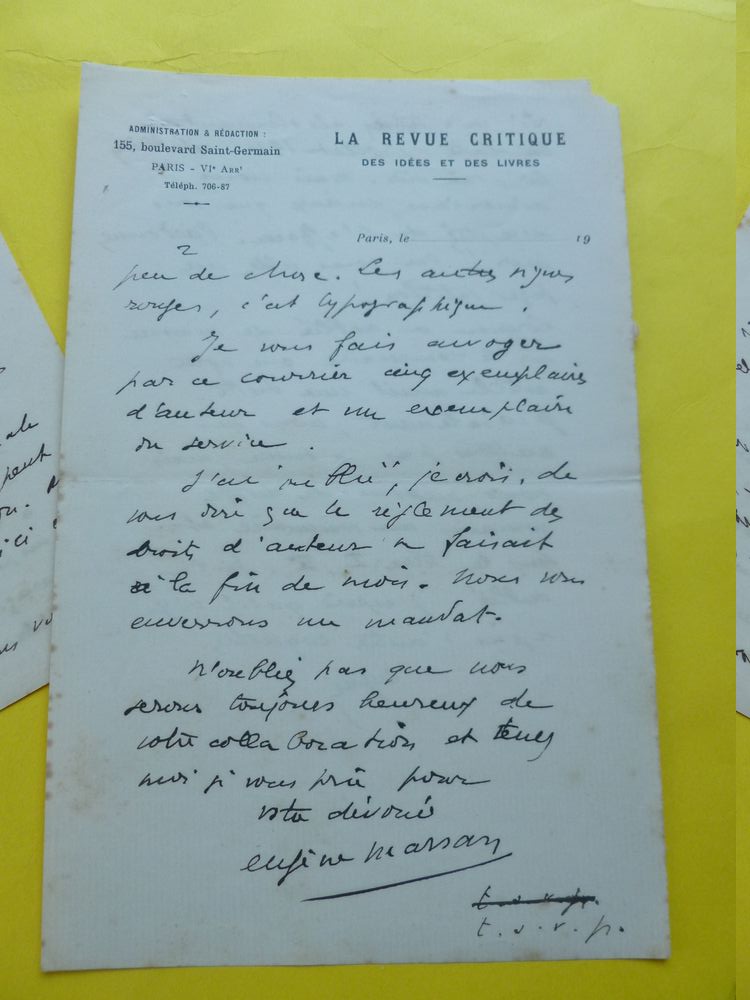 ADMINISTRATION & RÉDACTION :
155, boulevard Saint-Germain
PARIS - VIe ARRt
Téléph. 706-87
LA REVUE CRITIQUE
DES IDÉES ET DES LIVRES
Paris, le 19
2
peu de chose. Les autres signes
rouges, c'est typographique.
Je vous fais envoyer
par ce courrier cinq exemplaires
d'auteur et un exemplaire
du service.
J'ai oublié, je crois, de
vous dire que le règlement des
droits d'auteur se faisait
à la fin de mois. Nous vous
enverrons un mandat.
N'oubliez pas que nous
serons toujours heureux de
votre collaboration et tenez
moi je vous prie pour
votre dévoué
eugène marsan
t.s.v.p.
t.s.v.p.
ale
peut
ici